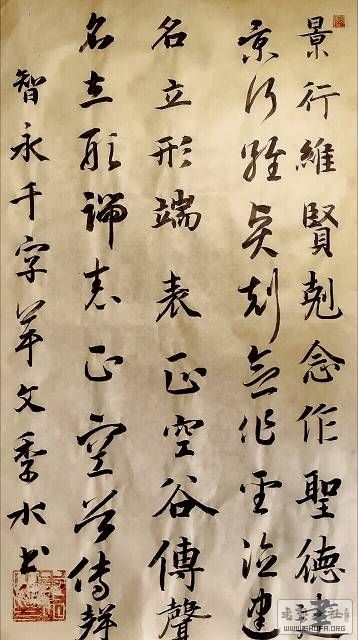 景行維賢剋念作聖德建
景行維賢剋念作聖德建
名立形端表正空谷傳聲
名立形端表正空谷傳聲
智永千字草文季水书